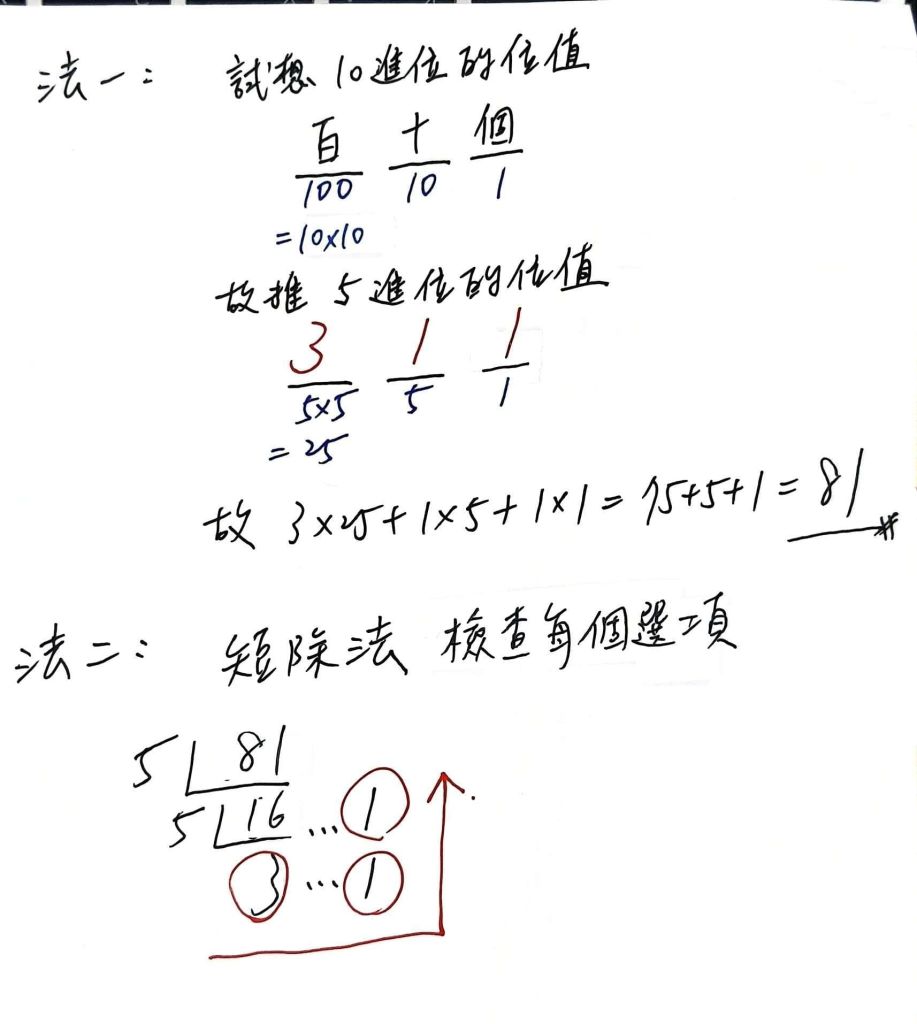 法一: 試想10進位的位值
百 十 個
100 10 1
=10×10
故推 5進位的位值
3 1 1
5×5 5 1
= 25
故 3×25+1×5+1×1=75+5+1=81
法二: 短除法 檢查每個選項
5 81
5 16 ...1
3 ...1